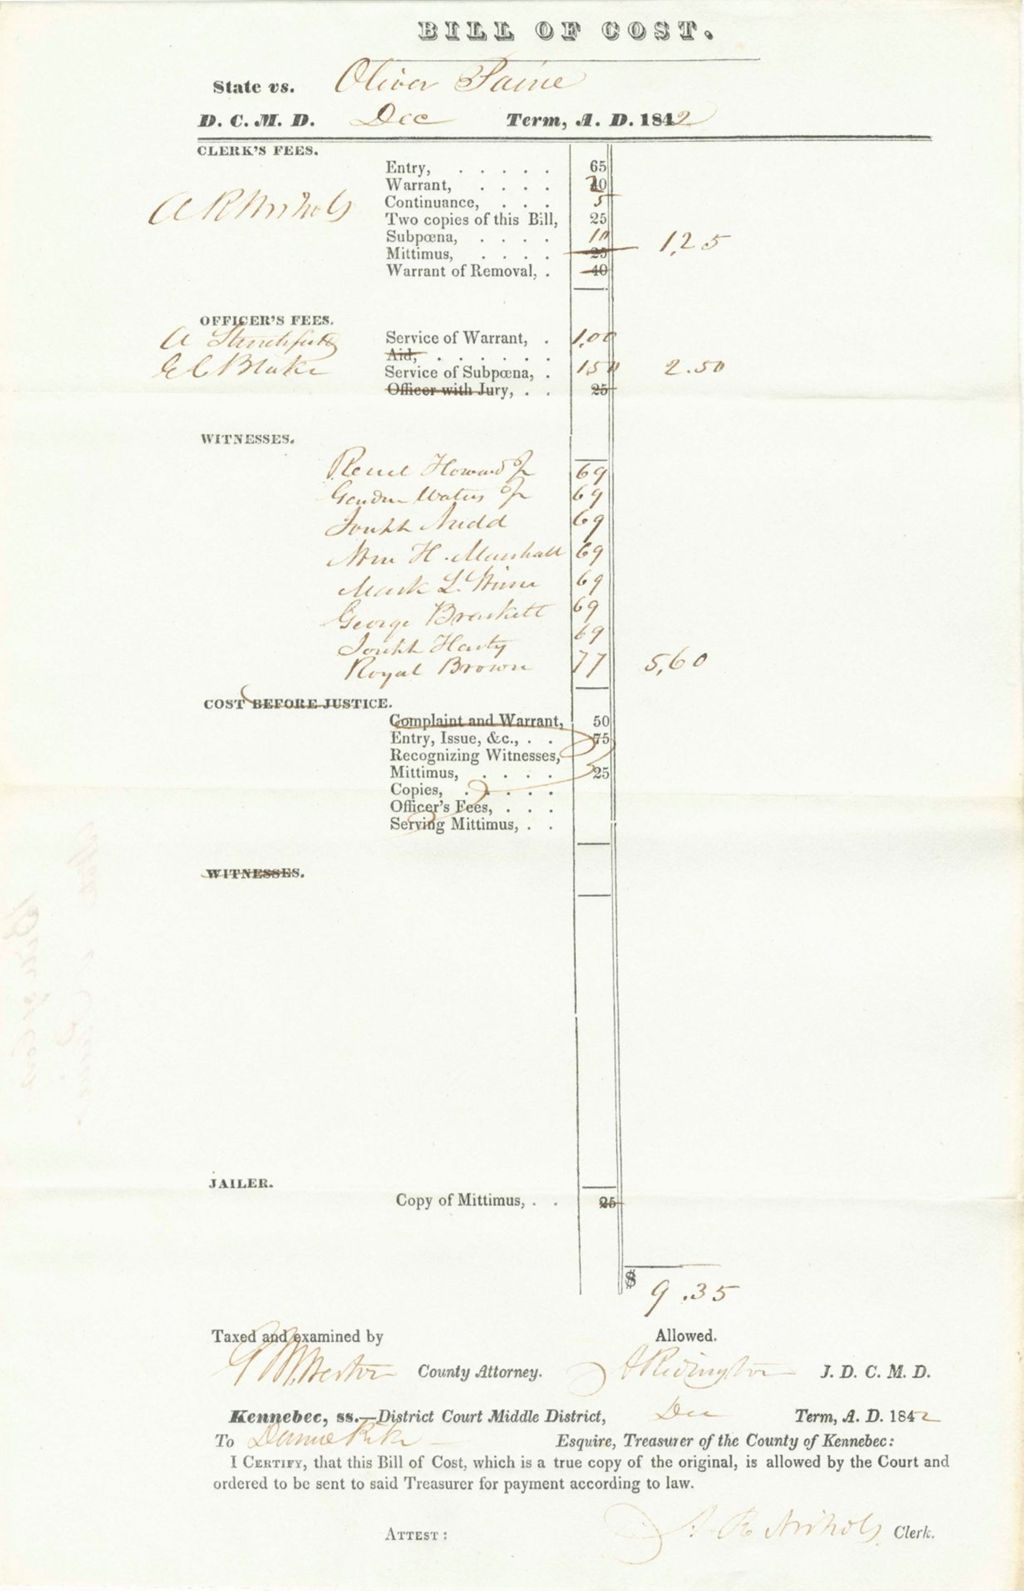 BILL OF COST.
State vs. Oliver Paine
D. C. M. D. Dec Term, A. D. 1842
CLERK'S FEES.
Entry, . . . . . 65
A R Nichols Warrant, . . . . 20
Continuance, . . . 5
Two copies of this Bill, 25
Subpœna, . . . . 10 1,25
Mittimus, . . . . 25
Warrant of Removal, . 40
OFFICER'S FEES.
A Service of Warrant, . 1,00
Aid, . . . . . .
E C Blake Service of Subpœna, . 150 2.50
Officer with Jury, . . 25
WITNESSES.
Howard Jr 69
Waters Jr 69
Joseph Nudd 69
Wm H. Marshall 69
Mark L. 69
George Brackett 69
Joseph 69
Royal Brown 77 5,60
COST BEFORE JUSTICE.
Complaint and Warrant, 50
Entry, Issue, &c., . . 75
Recognizing Witnesses,
Mittimus, . . . . 25
Copies, . . . . .
Officer's Fees, . . .
Serving Mittimus, . .
WITNESSES.
JAILER.
Copy of Mittimus, . . 25
$ 9.35
Taxed and examined by Allowed.
Weston County Attorney. A Redington J. D. C. M. D.
Kennebec, ss.—District Court Middle District, Dec Term, A. D. 1842
To Pike Esquire, Treasurer of the County of Kennebec:
I CERTIFY, that this Bill of Cost, which is a true copy of the original, is allowed by the Court and
ordered to be sent to said Treasurer for payment according to law.
ATTEST: A R Nichols Clerk.